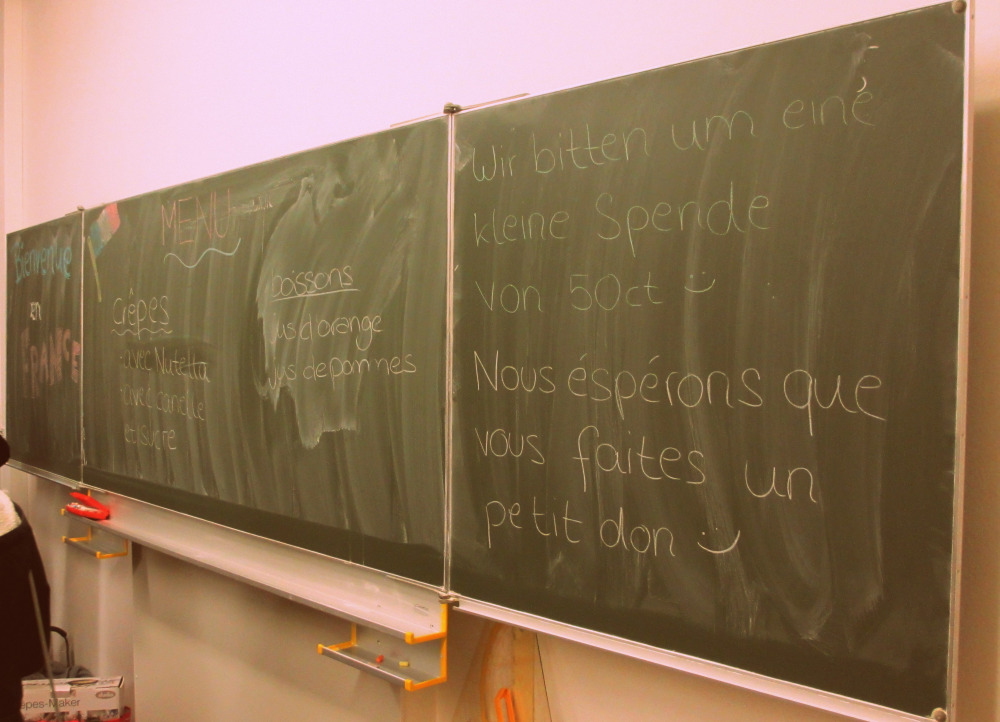 Bienvenue
en
FRANCE
MENU
crêpes
-avec Nutella
-avec canelle
et sucre
boissons
jus d'orange
jus de pommes
Wir bitten um eine
kleine Spende
von 50ct :)
Nous éspérons que
vous faites un
petit don :)
epes-Maker